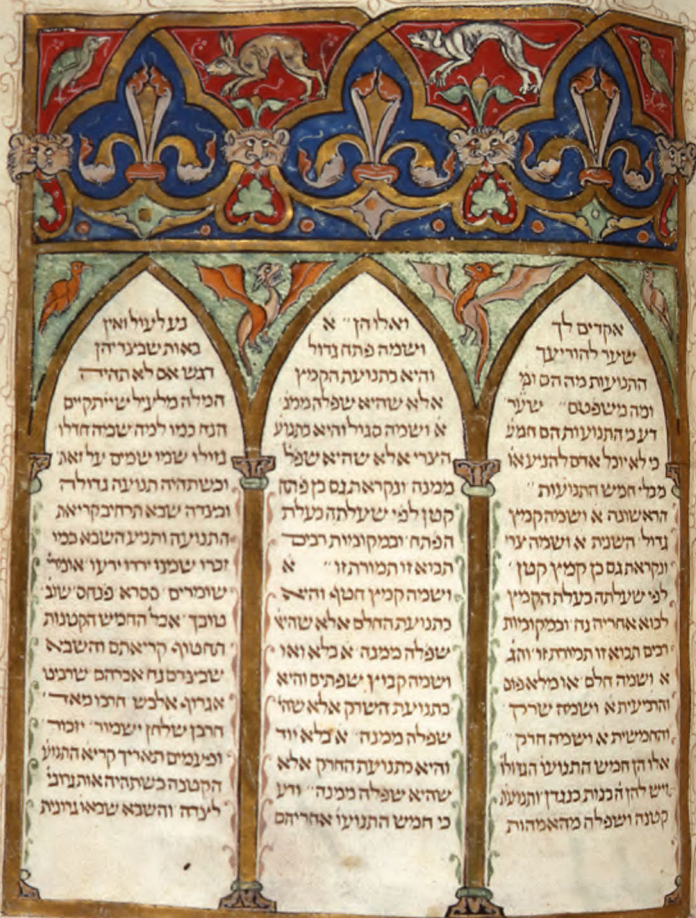 אקדים לך
שער להודיעך
התנועות מה הם
ומה משפטם״ שער
דע כי התנועות הם חמש
כי לא יוכל אדם להניע או
מבלי חמש התנועות״
הראשונה א ושמה קמץ
גדול השנית א ושמה צרי
ונקראת גם כן קמץ קטן׳
לפי שעלתה כעלת הקמץ
לבוא אחריה נח ובמקומות
רבים תבוא זו תמורת זו והג׳
א ושמה חלם או מלאפום
והרביעית א ושמה שרק׳
והחמישית א ושמה חרק״
אלו הן חמש התנועו׳ הגדולו׳
ויש להן הבנות כנגדן
קטנה ושפלה מהאמהות
ואלו הן״ א
ושמה פתח גדול
והיא כתנועת הקמץ
אלא שהיא שפלה ממנ׳
א ושמה סגול והיא כתנוע׳
הצרי אלא שהיא שפל׳
ממנה ונקראת גם כן פתח
קטן לפי שעלתה כעלת
הפתח ובמקומות רבים
תבוא זו תמורת זו״ א
ושמה קמץ חטף והיא
כתנועת החלם אלא שהיא
שפלה ממנה׳ א בלא ואו
ושמה קבוץ שפתים והיא
כתנועת השרק אלא שהי׳
שפלה ממנה״ א בלא יוד
והיא כתנועת החרק אלא
שהיא שפלה ממנה״ ודע
כי חמש התנועו׳ אחריהם
נע לעול ואין
באות שבצדיהן
דגש אם לא תהיה
המלה מלעיל שיתקיים
הנח כמו למה שמה חדלו
גזולו שמי שמים על זאת
וכשתהיה תנועה גדולה
ובצדה שבא תרחיב קריאת
התנועה ותניע השבא כמו
זכרו שמנו ירדו ידעו אומרי׳
שומרים סיסרא פנחס שוב׳
טובך אבל החמש הקטנות
תחטוף קריאתם והשבא
שבצדם נח אברהם שרביט
אגרוף אלבש חרבו מאד׳
חרבן שלחן ישמור יזכור׳
ופעמים תאריך קריאת התנוע׳
הקטנה כשתהיה אות גרונ׳
לצדה והשבא שבאות גרונית